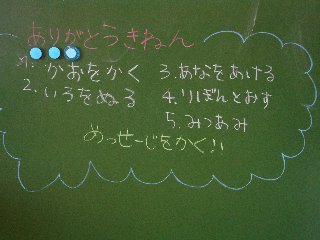 ありがとうきねん
1. かおをかく
2. いろをぬる
3. あなをあける
4. りぼんとおす
5. みつあみ
めっせーじをかく!!